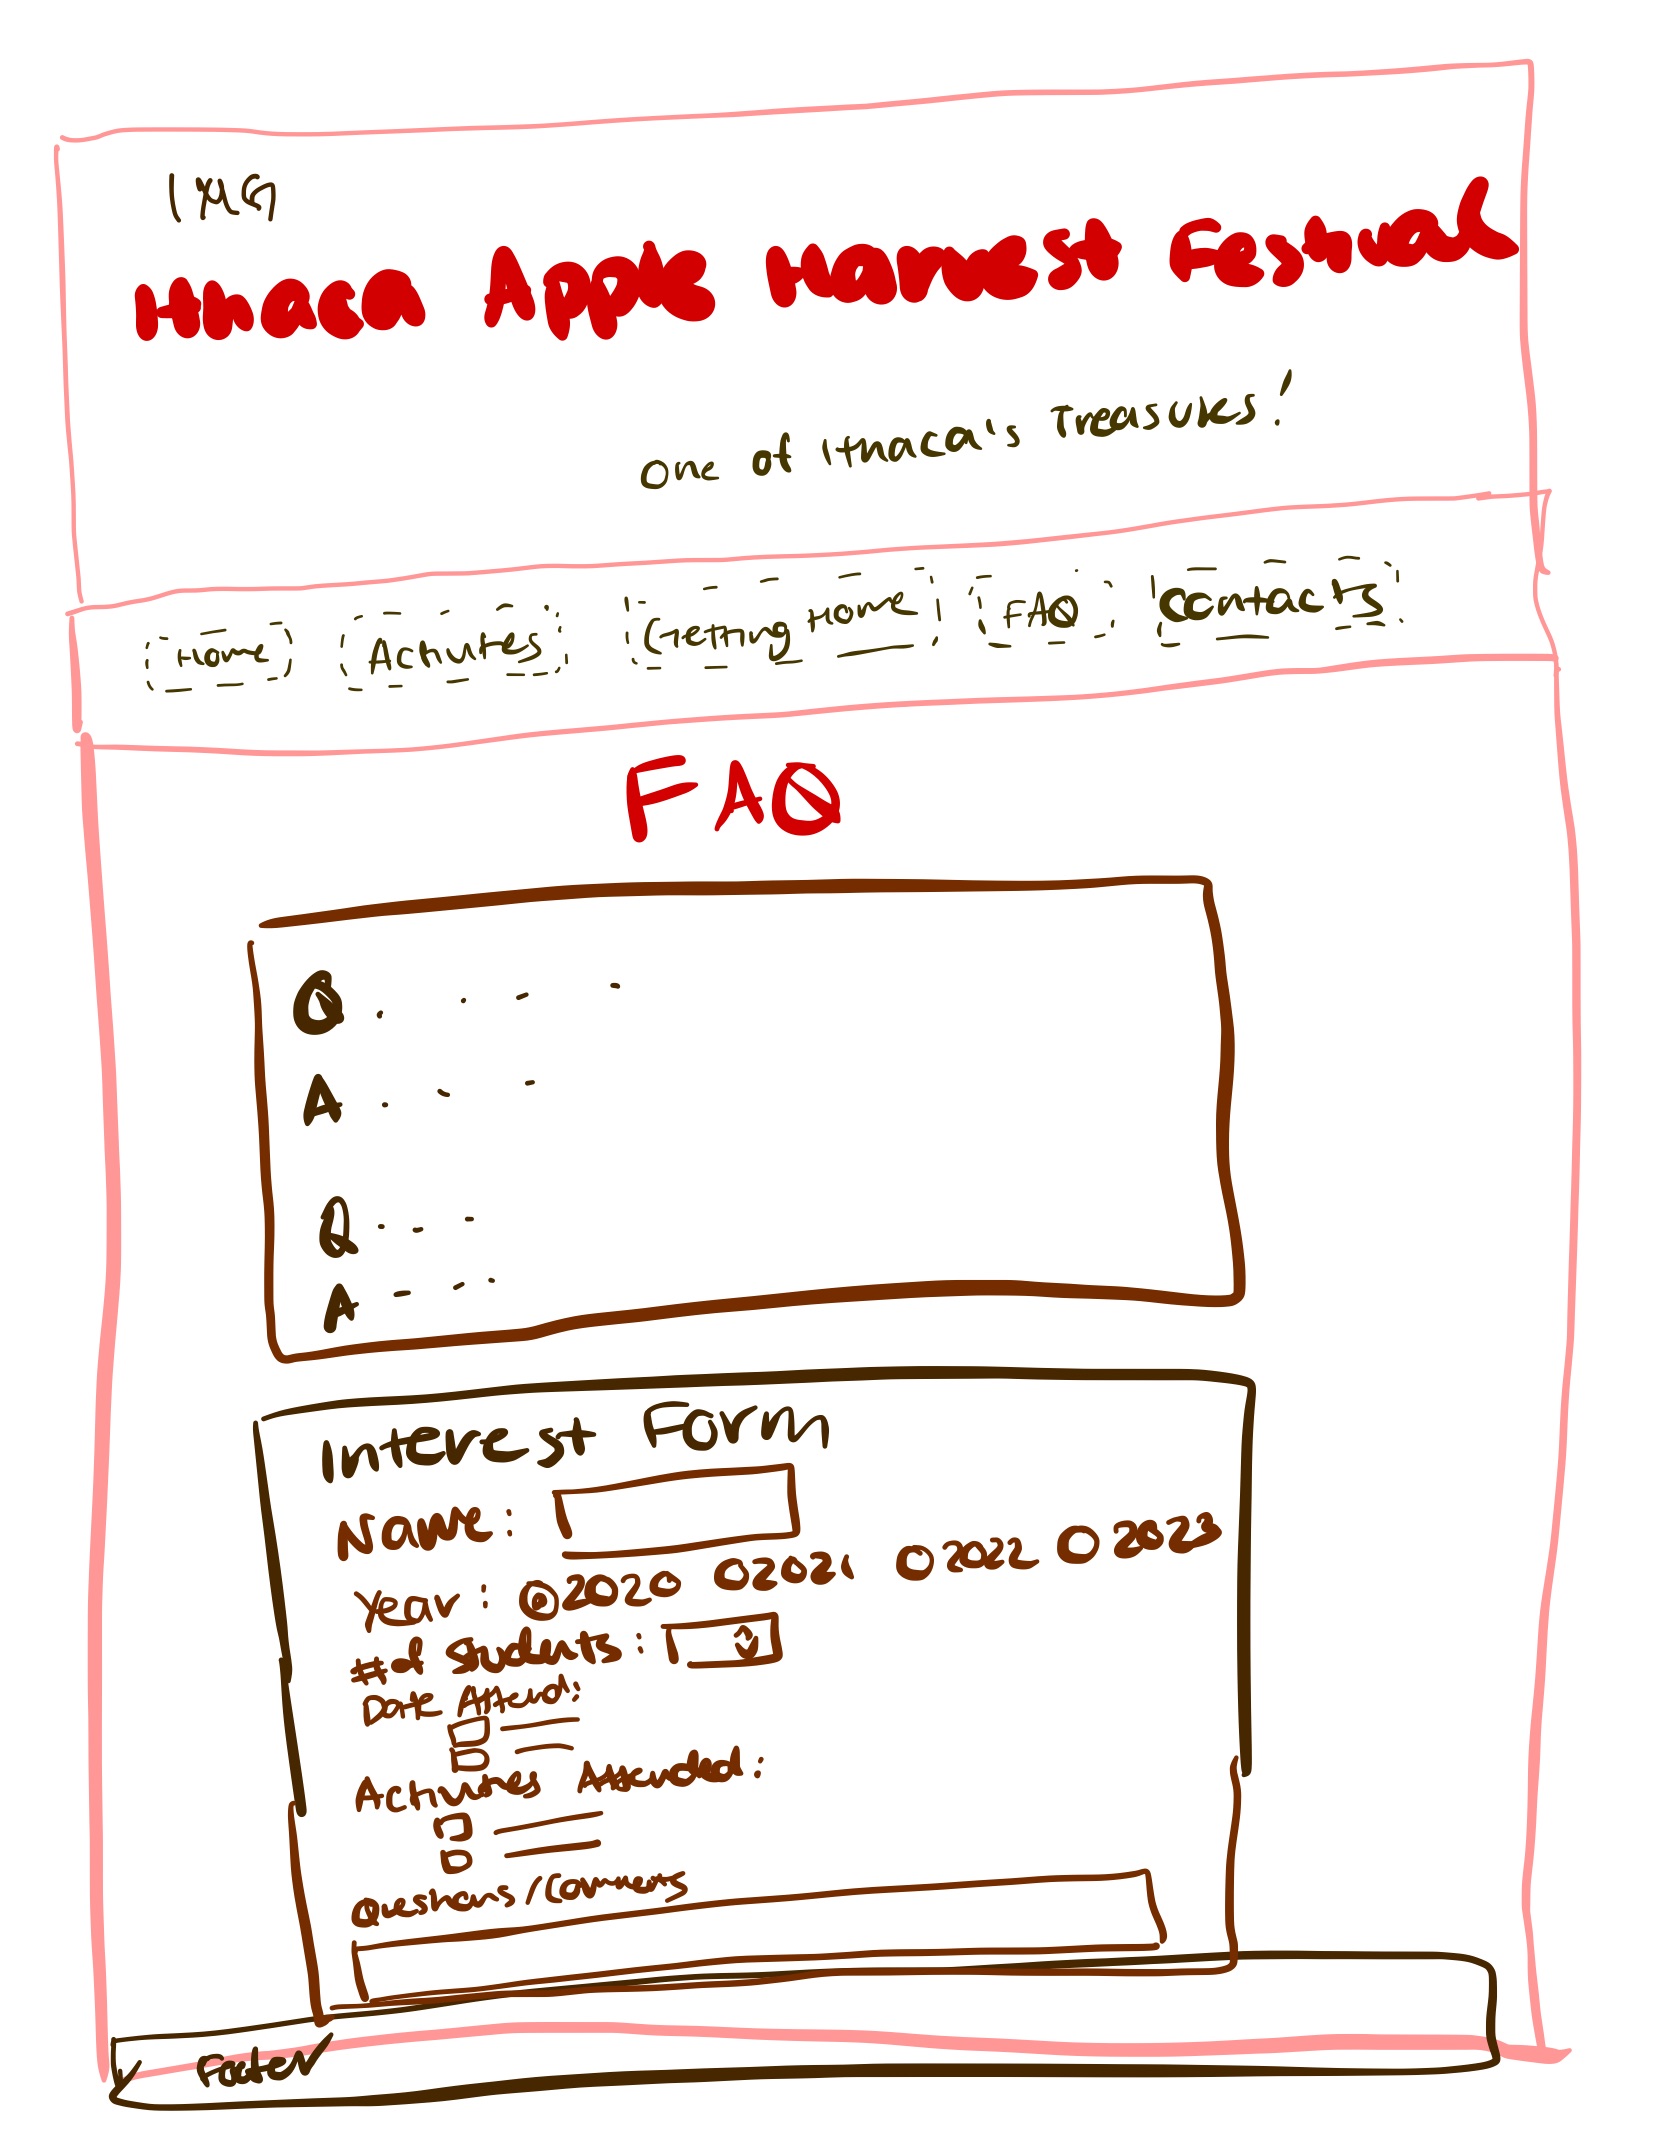 IMG
Ithaca Apple Harvest Festival
One of Ithaca's Treasures!
Home Activites Getting Home FAQ Contacts
FAQ
Q . . - -
A . - -
Q - - -
A - - -
Interest Form
Name:
Year: 2020 2021 2022 2023
# of Students:
Date Attend:
Activites Attended:
Questions/Comments
Footer